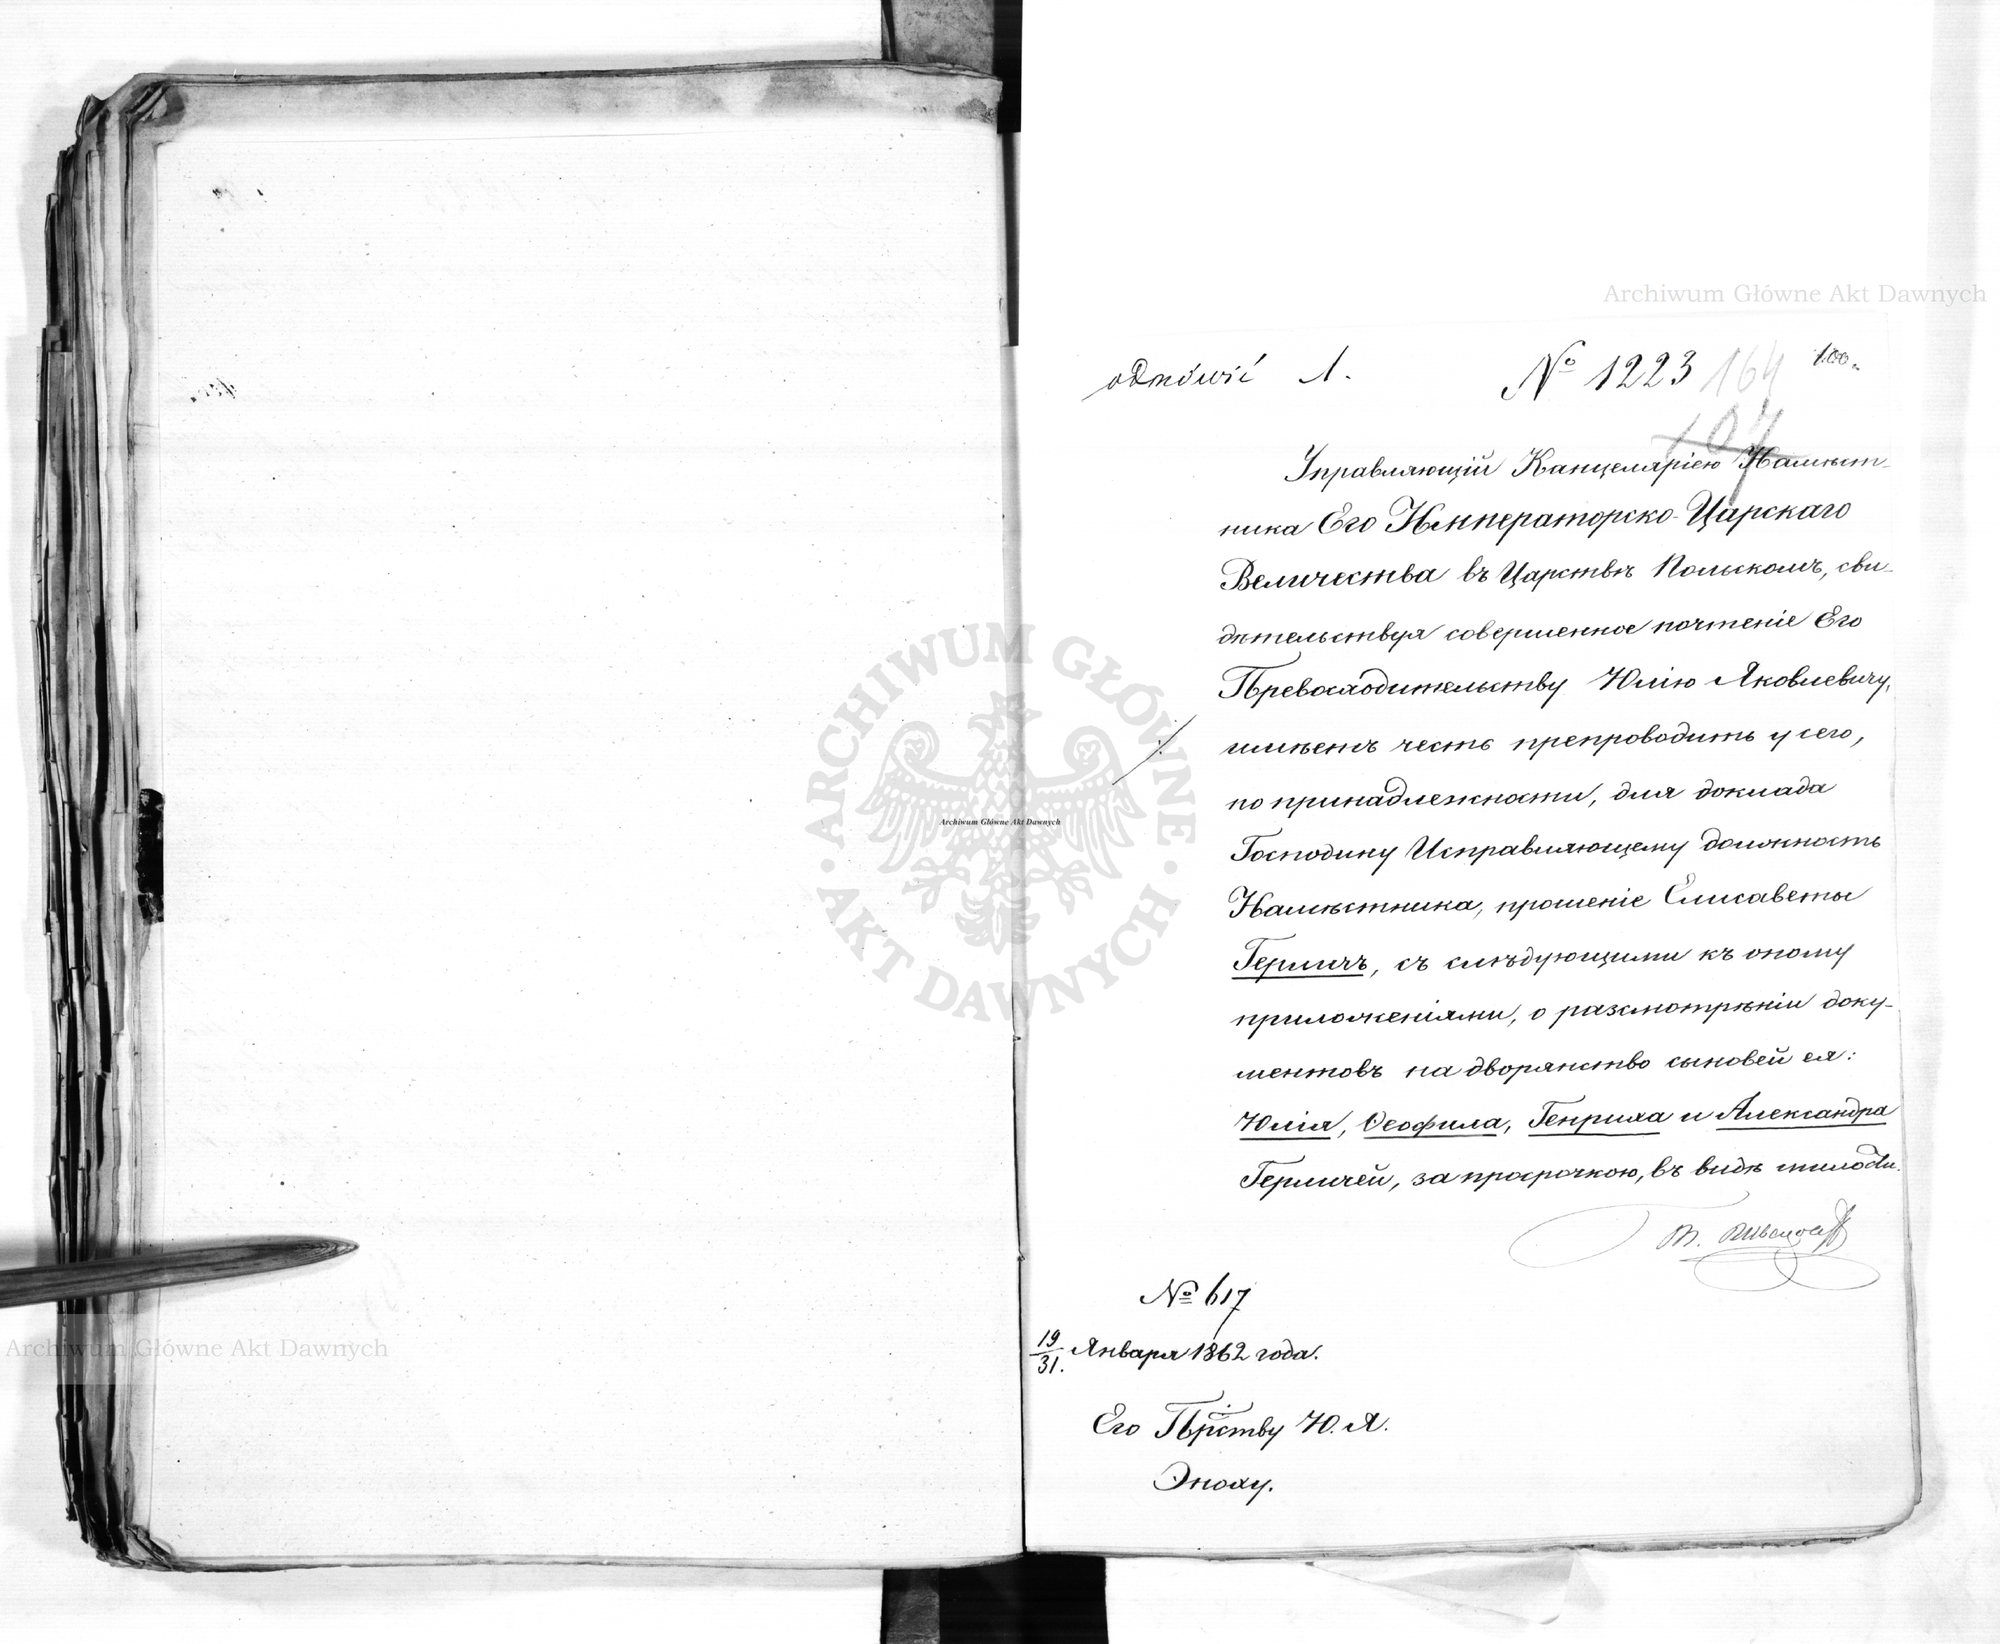 odmówić
№ 1223 164 100.
107
Управляющій Канцеляріею Намѣст-
ника Его Императорско-Царскаго
Величества въ Царствѣ Польскомъ, сви-
дѣтельствуя совершенное почтеніе Его
Превосходительству Юлію Яковлевичу,
имѣетъ честь препроводить у сего,
по принадлежности, для доклада
Господину Исправляющему должность
Намѣстника, прошеніе Елисаветы
Гермичъ, съ слѣдующими къ оному
приложеніями, о разсмотрѣніи доку-
ментовъ на дворянство сыновей ея:
Юлія, Ѳеофила, Генриха и Александра
Гермичей, за просрочкою, въ видѣ милости.
№ 617
19/31. Января 1862 года.
Его Пр̃ству Ю. Я.
Эноху.
Archiwum Główne Akt Dawnych
Archiwum Główne Akt Dawnych
Archiwum Główne Akt Dawnych
ARCHIWUM GŁÓWNE · AKT DAWNYCH ·